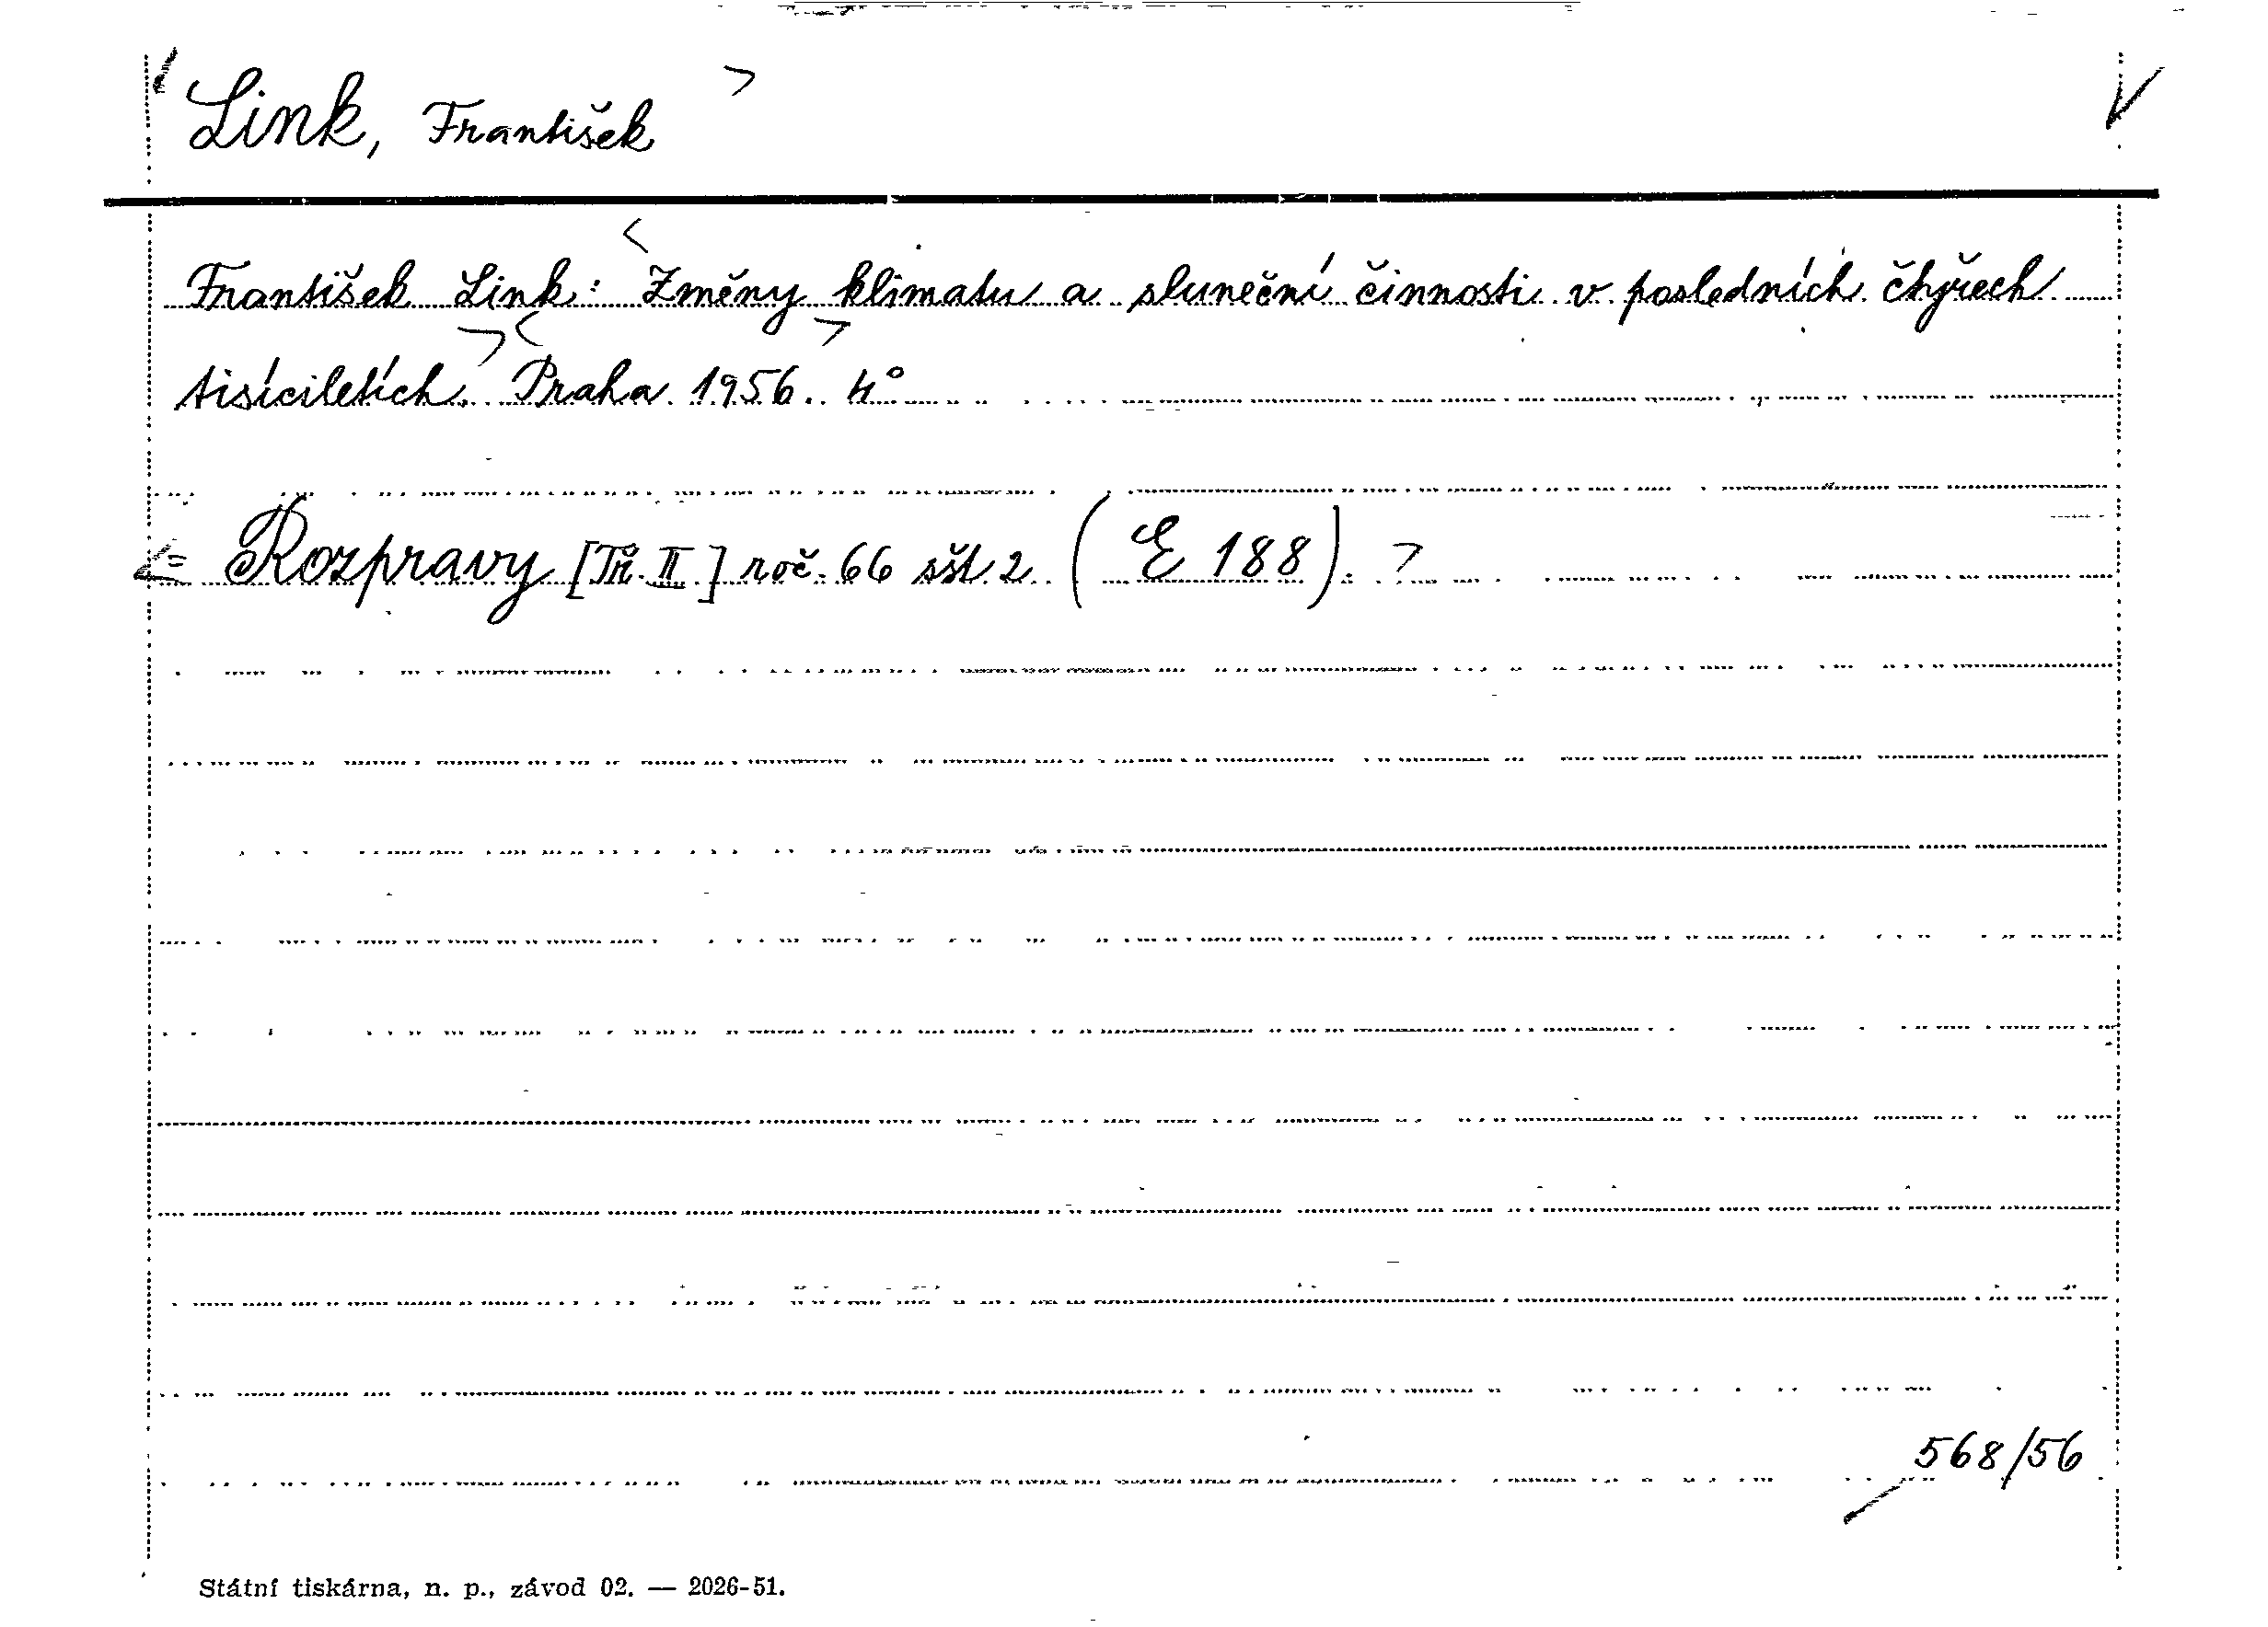 Link, František
František Link: Změny klimatu a sluneční činnosti v posledních čtyřech
tisíciletích. Praha 1956. 4°
= Rozpravy [Tř. II] roč. 66 sšt. 2 (E 188).
568/56
Státní tiskárna, n. p., závod 02. — 2026-51.